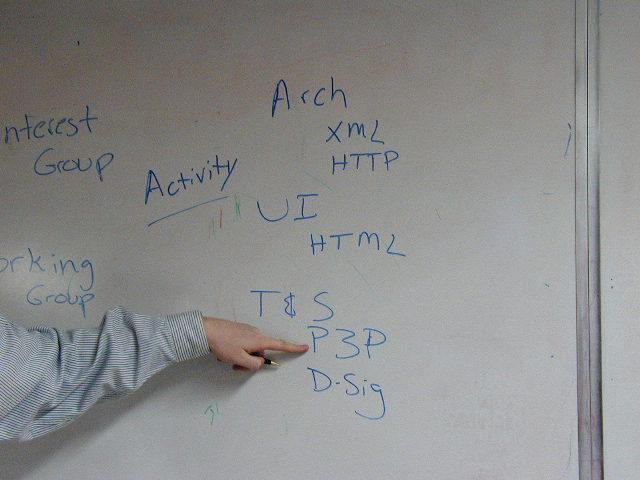 Arch
XML
HTTP
nterest
Group
Activity
UI
HTML
orking
Group
T & S
P3P
D-Sig